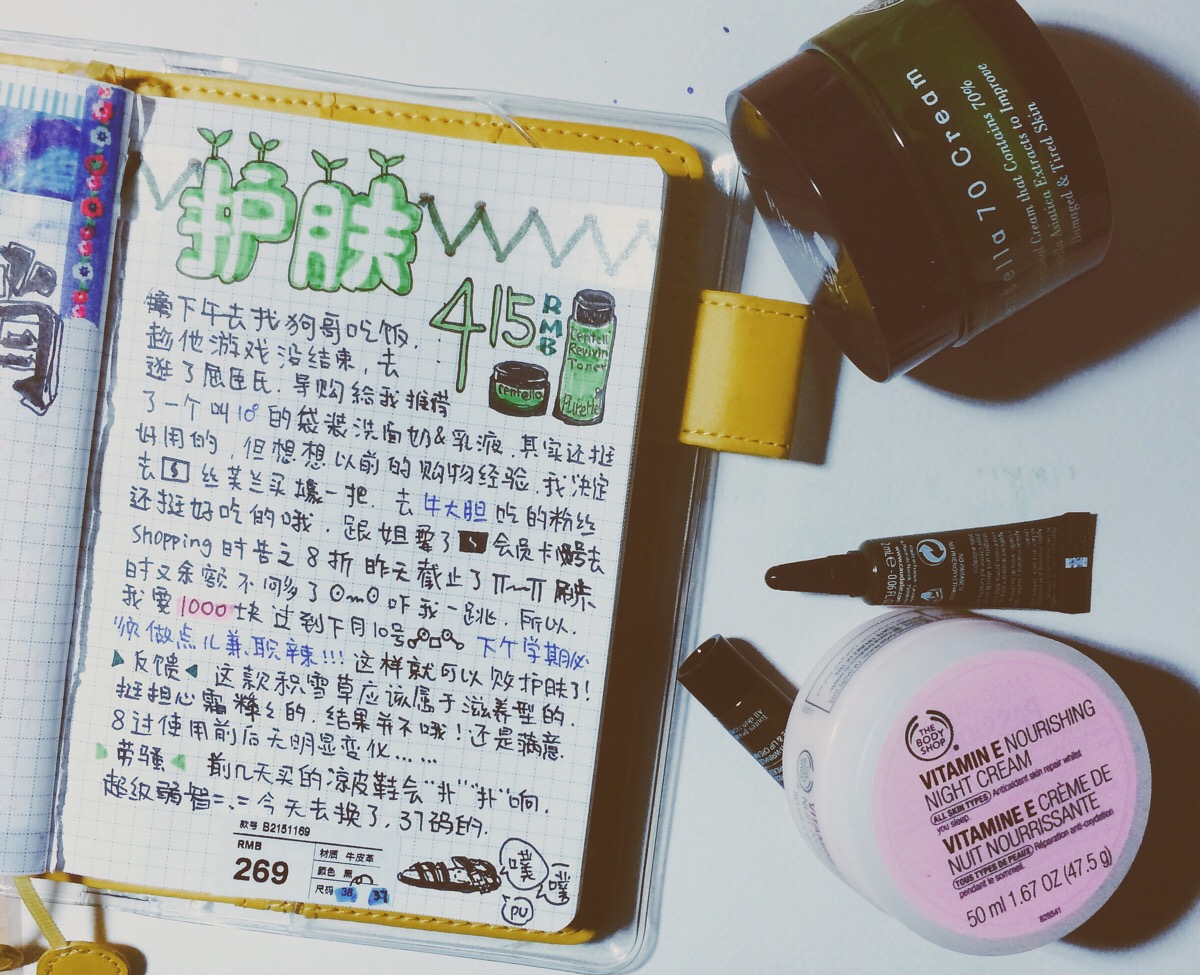 护肤
415 RMB
Centella
Revivin
Toner
PureHe
Centella
下午去找狗哥吃饭.
趁他游戏没结束,去
逛了屈臣氏.导购给我推荐
了一个叫10°的袋装洗面奶&乳液.其实还挺
好用的,但想想以前的购物经验.我决定
去 S 丝芙兰买爆一把.去牛大胆吃的粉丝
还挺好吃的哦,跟姐要了 S 会员卡号去
shopping 时 8折昨天截止了π~π 刷
时又余额不够了⊙﹏⊙吓我一跳.所以.
我要1000块过到下月10号 下个学期必
须做点儿兼职辣!!!这样就可以败护肤了!
反馈 这款积雪草应该属于滋养型的.
挺担心霜 的,结果并不哦!还是满意.
8过使用前后无明显变化……
劳骚 前几天买的凉皮鞋会“扑”“扑”响.
超级弱智=.= 今天去换了.37码的.
款号 B2151169
RMB
269
材质 牛皮革
颜色 黑
尺码 38 37
噗
噗
pu
ella 70 Cream
Cream that Contains 70%
Asiatica Extracts to Improve
Damaged & Tired Skin.
THE
BODY
SHOP
VITAMIN E NOURISHING
NIGHT CREAM
ALL SKIN TYPES Antioxidant skin repair whilst
you sleep.
VITAMINE E CRÈME DE
NUIT NOURRISSANTE
TOUS TYPES DE PEAUX Réparation anti-oxydation
pendant le sommeil.
50 ml 1.67 OZ (47.5 g)
828541